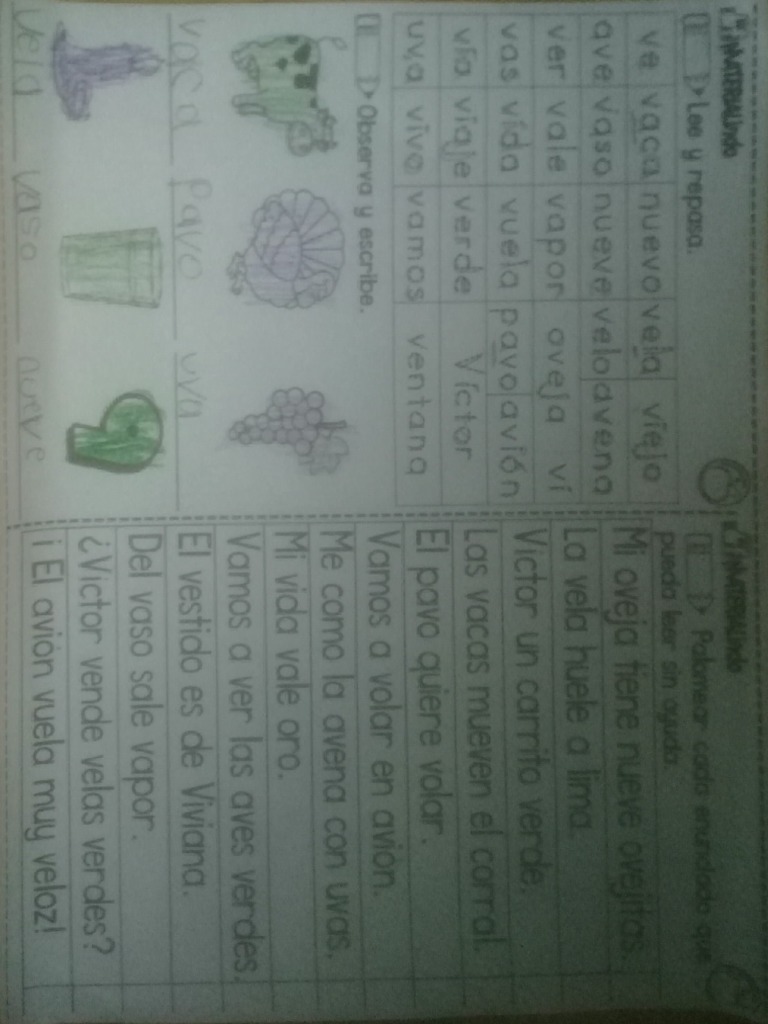 MATERIALindo
Lee y repasa.
ve vaca nuevo vela viejo
ave vaso nueve velo avena
ver vale vapor oveja vi
vas vida vuela pavo avión
vía viaje verde Víctor
uva vivo vamos ventana
Observa y escribe.
vaca pavo uva
vela vaso nueve
MATERIALindo
Palomear cada enunciado que
pueda leer sin ayuda.
Mi oveja tiene nueve ovejitas.
La vela huele a lima.
Víctor un carrito verde.
Las vacas mueven el corral.
El pavo quiere volar.
Vamos a volar en avión.
Me como la avena con uvas.
Mi vida vale oro.
Vamos a ver las aves verdes.
El vestido es de Viviana.
Del vaso sale vapor.
¿Víctor vende velas verdes?
¡ El avión vuela muy veloz!